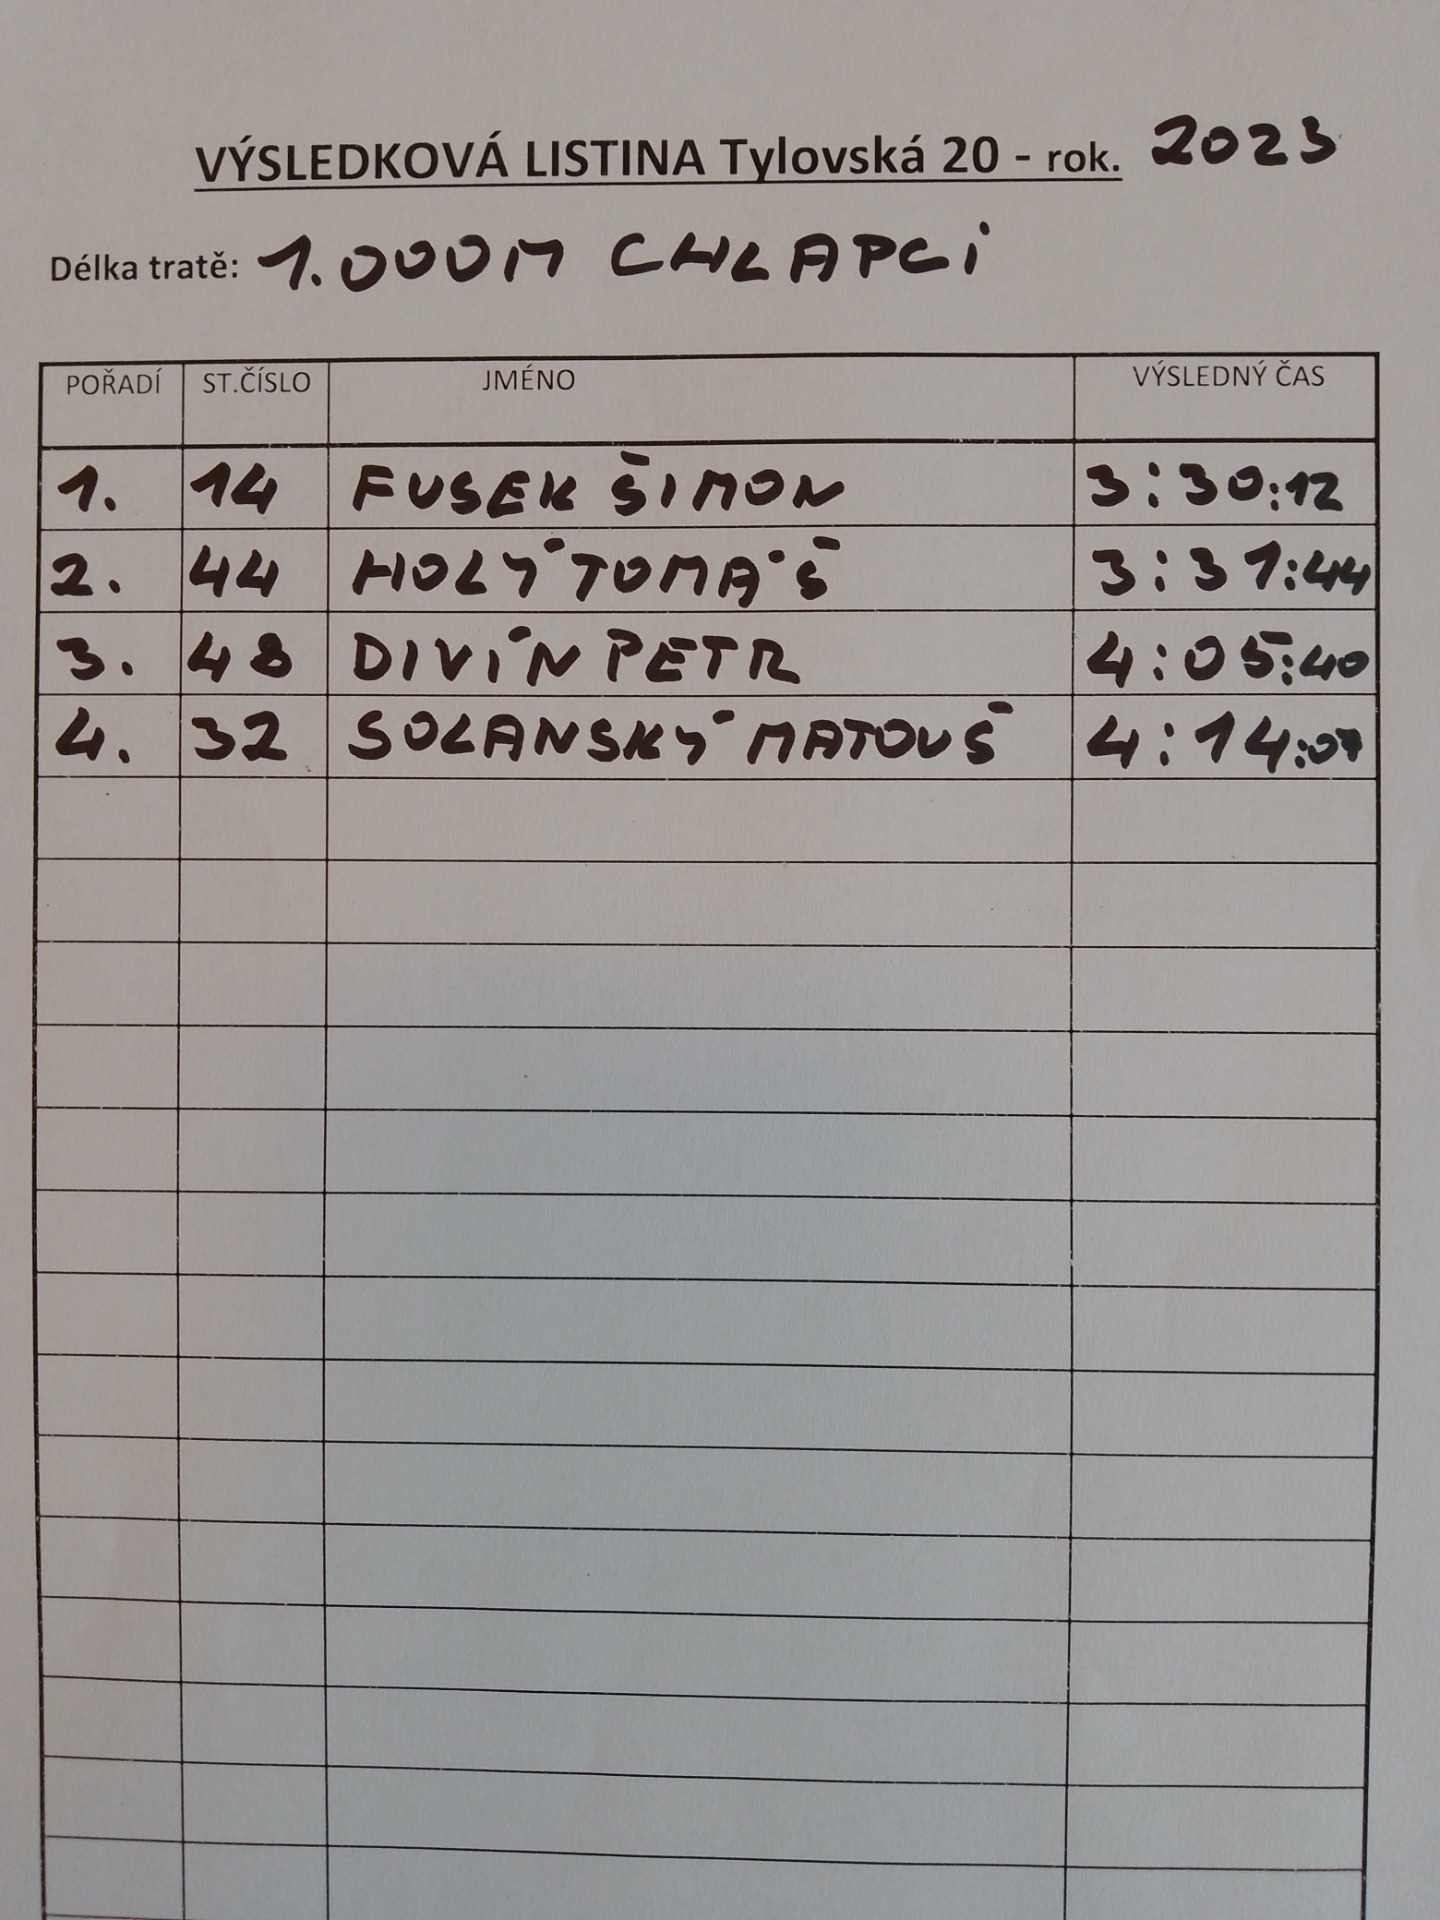 VÝSLEDKOVÁ LISTINA Tylovská 20 - rok. 2023
Délka tratě: 1.000M CHLAPCI
POŘADÍ ST.ČÍSLO JMÉNO VÝSLEDNÝ ČAS
1. 14 FUSEK ŠIMON 3:30:12
2. 44 HOLÝ TOMÁŠ 3:31:44
3. 48 DIVÍN PETR 4:05:40
4. 32 SOLANSKÝ MATOUŠ 4:14:07